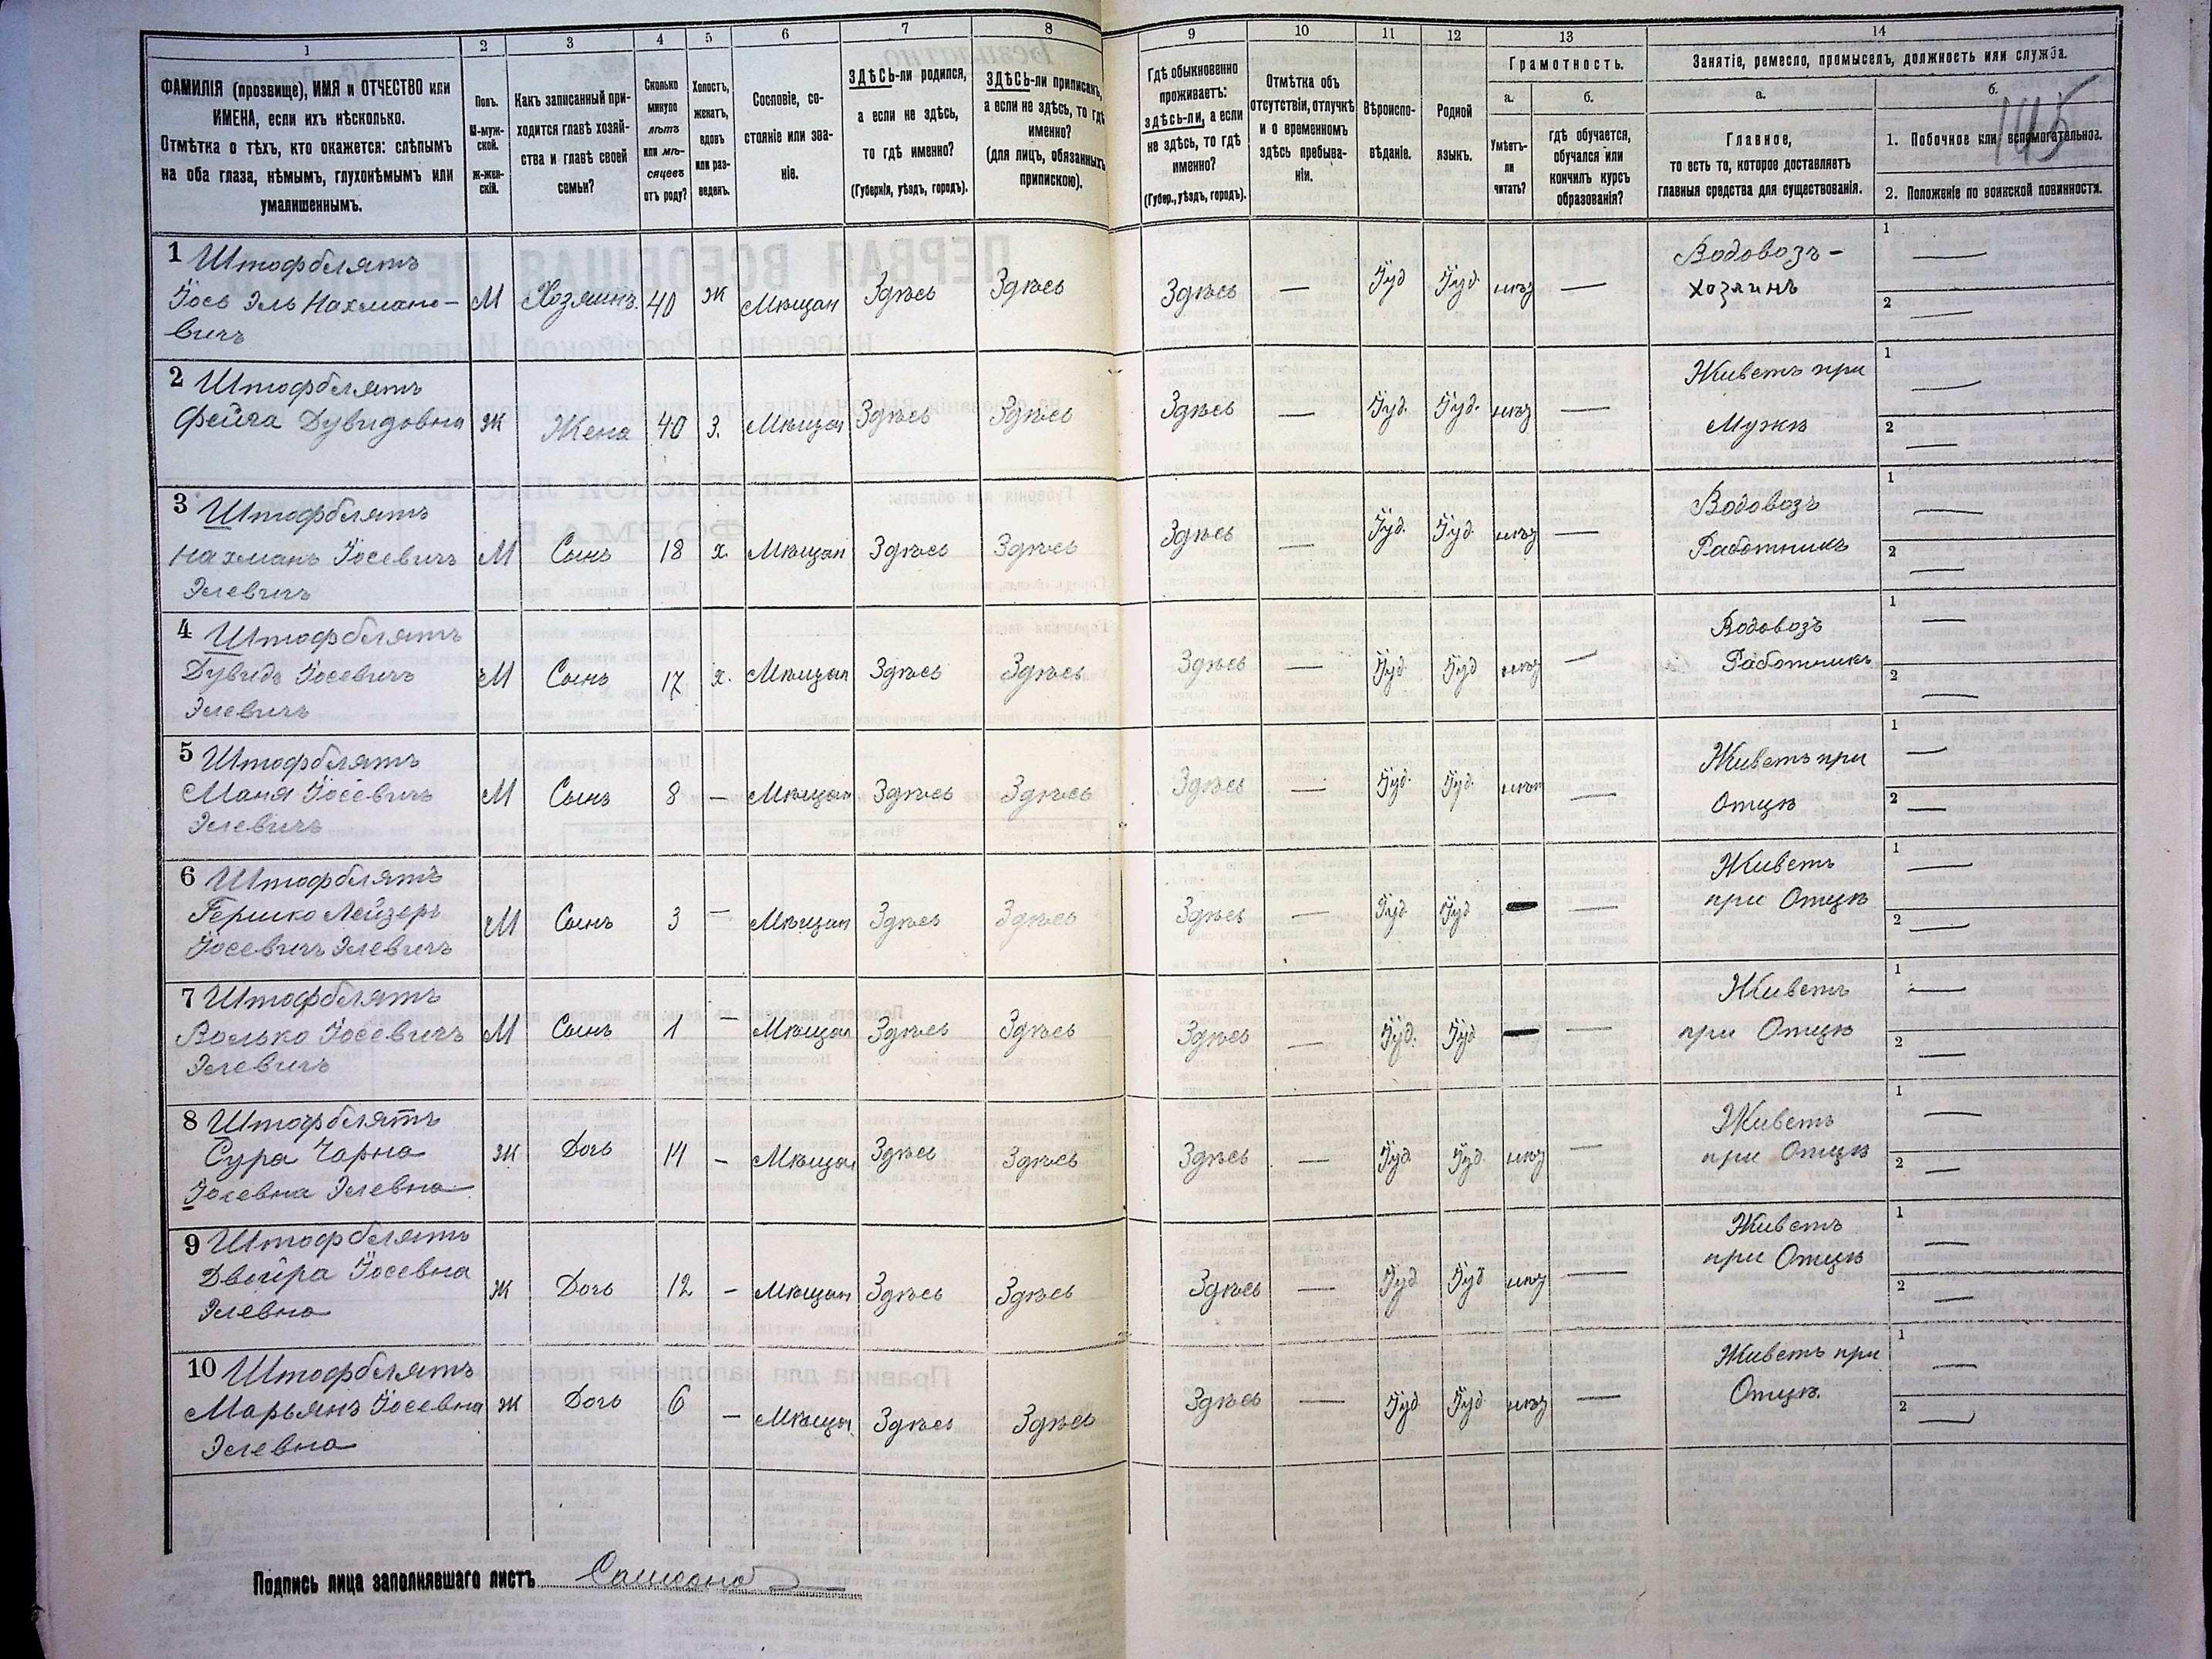 1 2 3 4 5 6 7 8 9 10 11 12 13 14
ФАМИЛІЯ (прозвище), ИМЯ и ОТЧЕСТВО или
ИМЕНА, если ихъ нѣсколько.
Отмѣтка о тѣхъ, кто окажется: слѣпымъ
на оба глаза, нѣмымъ, глухонѣмымъ или
умалишеннымъ.
Полъ.
М-муж-
ской.
Ж-жен-
скій.
Какъ записанный при-
ходится главѣ хозяй-
ства и главѣ своей
семьи?
Сколько
минуло
лѣтъ
или мѣ-
сяцевъ
отъ роду?
Холостъ,
женатъ,
вдовъ
или раз-
веденъ.
Сословіе, со-
стояніе или зва-
ніе.
ЗДѢСЬ-ли родился,
а если не здѣсь,
то гдѣ именно?
(Губернія, уѣздъ, городъ).
ЗДѢСЬ-ли приписанъ,
а если не здѣсь, то гдѣ
именно?
(для лицъ, обязанныхъ
припискою).
Гдѣ обыкновенно
проживаетъ:
здѣсь-ли, а если
не здѣсь, то гдѣ
именно?
(Губер., уѣздъ, городъ).
Отмѣтка объ
отсутствіи, отлучкѣ
и о временномъ
здѣсь пребыва-
ніи.
Вѣроиспо-
вѣданіе.
Родной
языкъ.
Грамотность.
а.
Умѣетъ-
ли
читать?
б.
гдѣ обучается,
обучался или
кончилъ курсъ
образованія?
Занятіе, ремесло, промыселъ, должность или служба.
а.
Главное,
то есть то, которое доставляетъ
главныя средства для существованія.
б.
145
1. Побочное или вспомогательное.
2. Положеніе по воинской повинности.
1 Штофблятъ
Іось Эль Нахмано-
вичъ
М Хозяинъ. 40 ж Мѣщан Здѣсь Здѣсь Здѣсь — Іуд Іуд. — Водовозъ -
хозяинъ
1 —
2 —
2 Штофблятъ
Фейга Дувидовна Ж Жена 40 з. Мѣщан Здѣсь Здѣсь Здѣсь — Іуд. Іуд. — Живетъ при
Мужѣ
1 —
2 —
3 Штофблятъ
Нахманъ Іосевичъ
Элевичъ
М Сынъ 18 х. Мѣщан Здѣсь Здѣсь Здѣсь — Іуд. Іуд — Водовозъ
Работникъ
1 —
2 —
4 Штофблятъ
Дувидъ Іосевичъ
Элевичъ
М Сынъ 17 х. Мѣщан Здѣсь Здѣсь Здѣсь — Іуд Іуд — Водовозъ
Работникъ
1 —
2 —
5 Штофблятъ
Маня Іосевичъ
Элевичъ
М Сынъ 8 — Мѣщан Здѣсь Здѣсь Здѣсь — Іуд. Іуд. — Живетъ при
Отцѣ
1 —
2 —
6 Штофблятъ
Гершко Лейзеръ
Іосевичъ Элевичъ
М Сынъ 3 — Мѣщан Здѣсь Здѣсь Здѣсь — Іуд Іуд — — Живетъ
при Отцѣ
1 —
2 —
7 Штофблятъ
Волько Іосевичъ
Элевичъ
М Сынъ 1 — Мѣщан Здѣсь Здѣсь Здѣсь — Іуд. Іуд — — Живетъ
при Отцѣ
1 —
2 —
8 Штофблятъ
Сура Чарна
Іосевна Элевна
Ж Дочь 14 — Мѣщан Здѣсь Здѣсь Здѣсь — Іуд Іуд. — Живетъ
при Отцѣ
1 —
2 —
9 Штофблятъ
Двойра Іосевна
Элевна
Ж Дочь 12 — Мѣщан Здѣсь Здѣсь Здѣсь — Іуд Іуд — Живетъ
при Отцѣ
1 —
2 —
10 Штофблятъ
Марьянъ Іосевна
Элевна
Ж Дочь 6 — Мѣщан Здѣсь Здѣсь Здѣсь — Іуд Іуд. — Живетъ при
Отцѣ.
1 —
2 —
Подпись лица заполнявшаго листъ